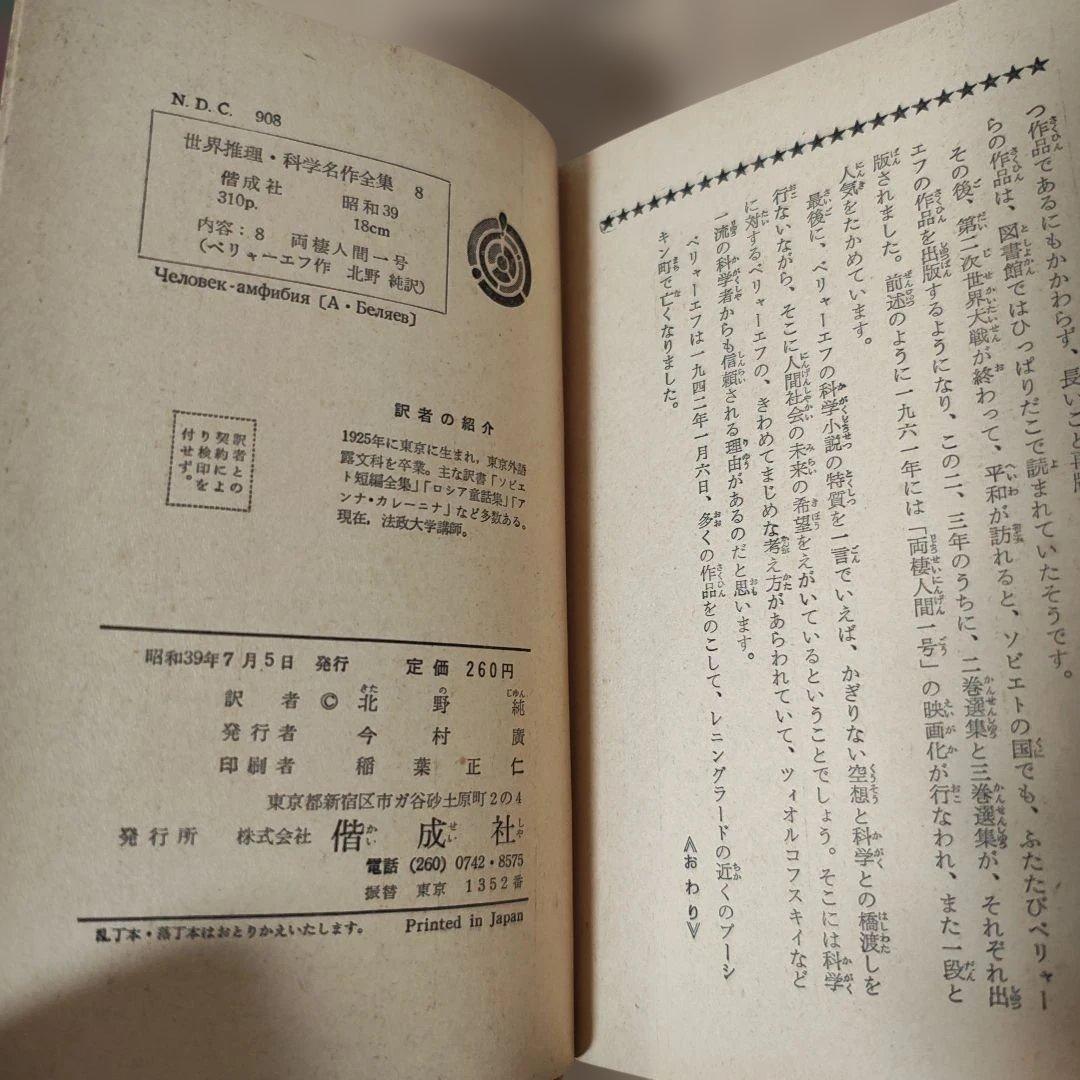 つ作品であるにもかかわらず、長いこと再版
らの作品は、図書館ではひっぱりだこで読まれていたそうです。
その後、第二次世界大戦が終わって、平和が訪れると、ソビエトの国でも、ふたたびベリャー
エフの作品を出版するようになり、この二、三年のうちに、二巻選集と三巻選集が、それぞれ出
版されました。前述のように一九六一年には「両棲人間一号」の映画化が行なわれ、また一段と
人気をたかめています。
最後に、ベリャーエフの科学小説の特質を一言でいえば、かぎりない空想と科学との橋渡しを
行ないながら、そこに人間社会の未来の希望をえがいているということでしょう。そこには科学
に対するベリャーエフの、きわめてまじめな考え方があらわれていて、ツィオルコフスキイなど
一流の科学者からも信頼される理由があるのだと思います。
ベリャーエフは一九四二年一月六日、多くの作品をのこして、レニングラードの近くのプーシ
キン町で亡くなりました。
《おわり》
N. D. C. 908
世界推理・科学名作全集 8
偕成社 昭和39
310p. 18cm
内容：8 両棲人間一号
(ベリャーエフ作 北野 純訳)
Человек-амфибия [А・Беляев]
訳者の紹介
1925年に東京に生まれ，東京外語
露文科を卒業。主な訳書「ソビエ
ト短編全集」「ロシア童話集」「ア
ンナ・カレーニナ」など多数ある。
現在，法政大学講師。
訳者との
契約によ
り検印を
付せず。
昭和39年7月5日 発行 定価 260円
訳者 © 北野純
発行者 今村廣
印刷者 稲葉正仁
東京都新宿区市ガ谷砂土原町2の4
発行所 株式会社 偕成社
電話 (260) 0742・8575
振替 東京 1352番
乱丁本・落丁本はおとりかえいたします。 Printed in Japan